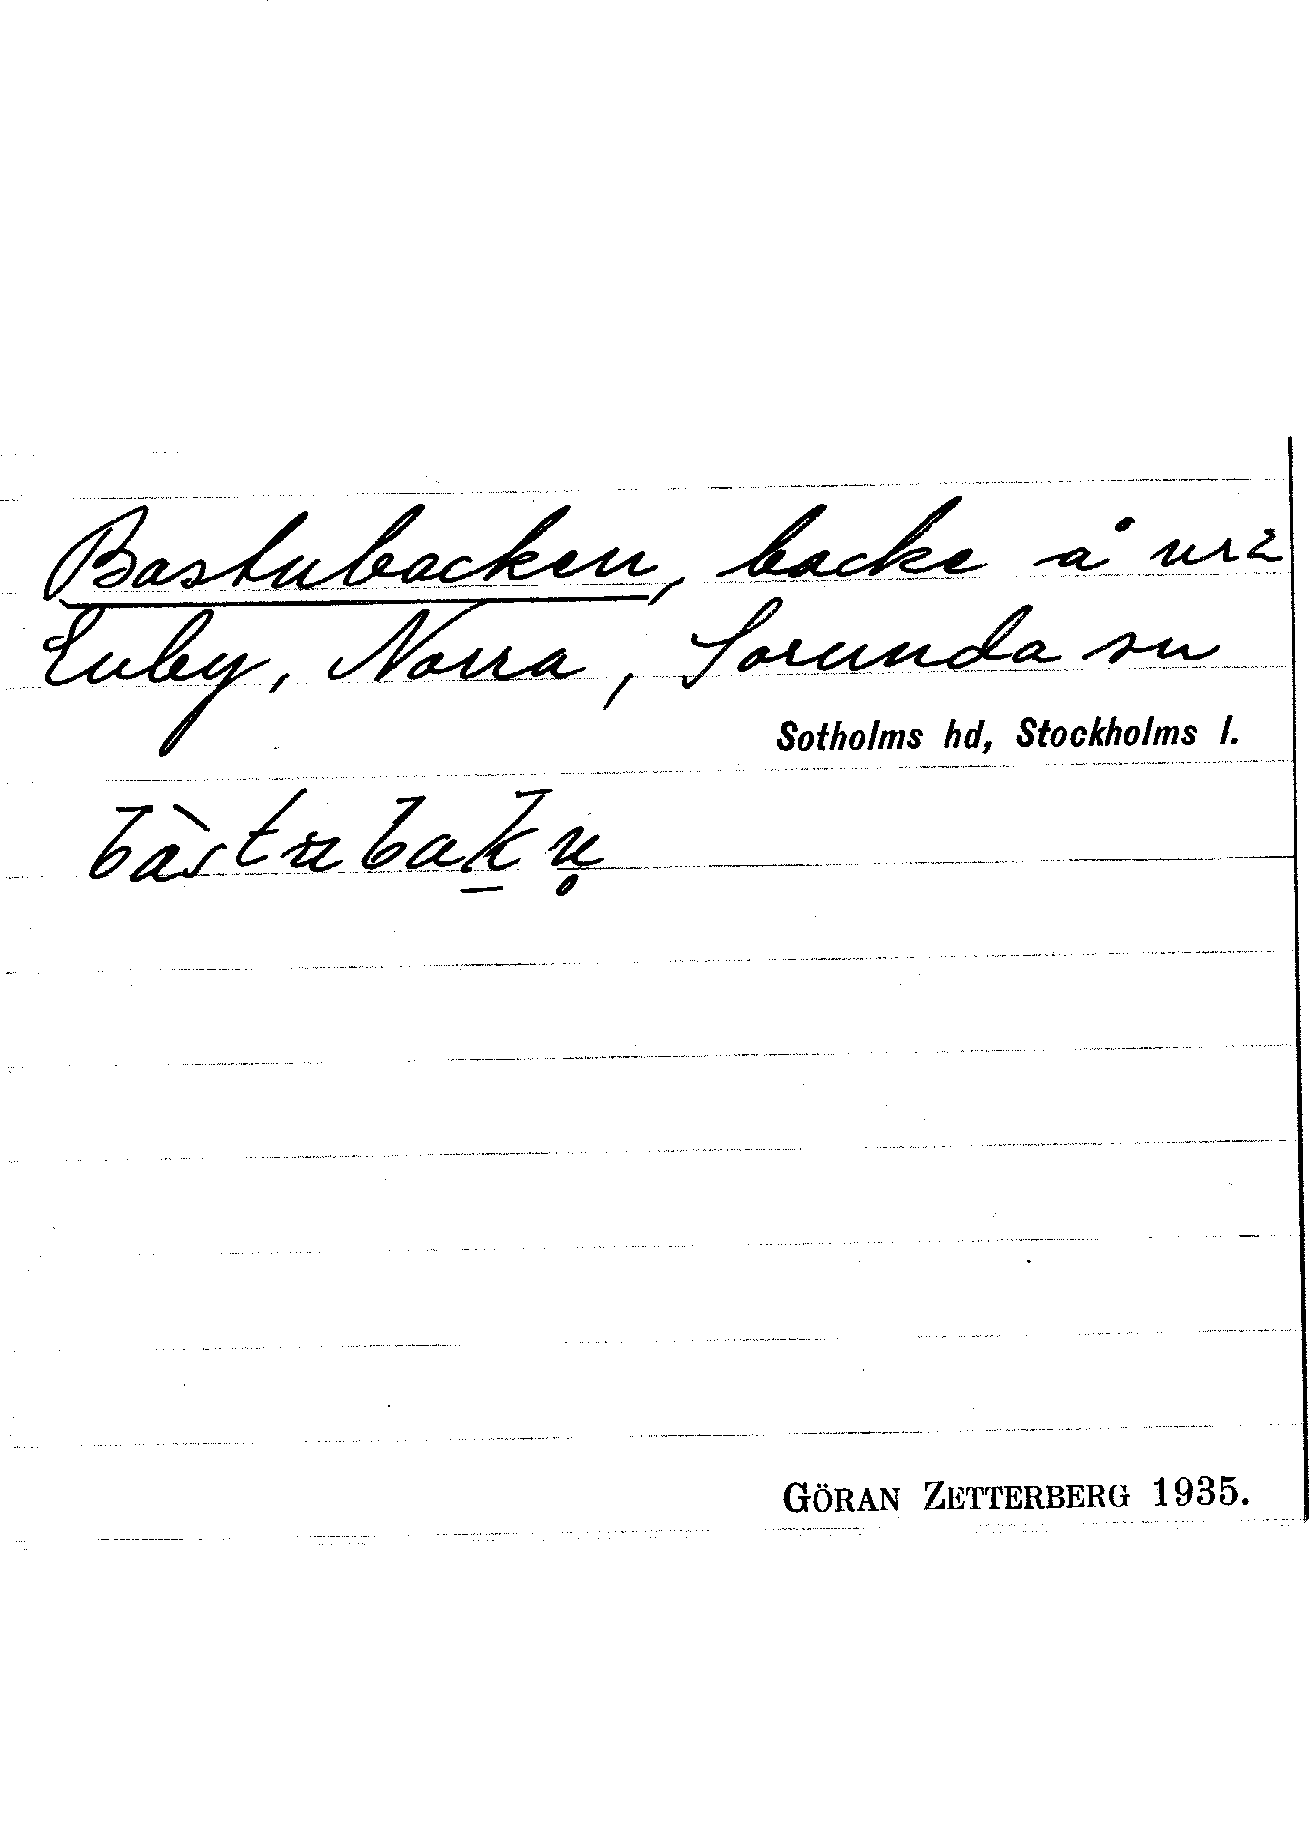 Bastubacken, backe å nr 2
Enby, Norra, Sorunda sn
Sotholms hd, Stockholms l.
bàstubakn̥
GÖRAN ZETTERBERG 1935.